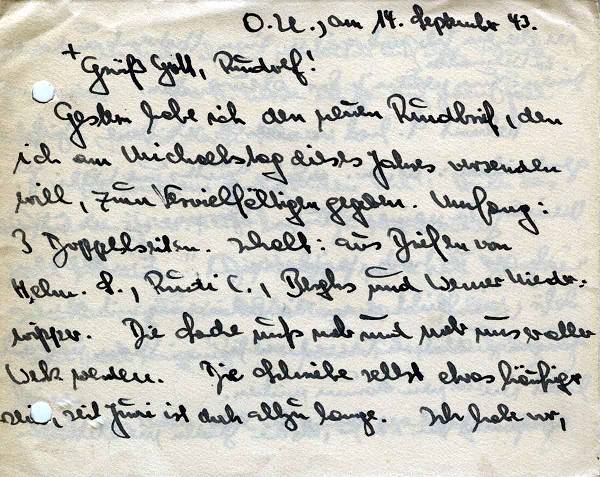 O.U., am 14. September 43.
+ Grüß Gott, Rudolf!
Gestern habe ich den neuen Rundbrief, den
ich am Michaelstag dieses Jahres versenden
will, zum Vervielfältigen gegeben. Umfang:
3 Doppelseiten. Inhalt: aus Briefen von
Helm. S., Rudi C., Berghs und Werner Nieder-
wipper. Die Sache muß mehr und mehr unser aller
Werk werden. Die Schreibe selbst etwas häufiger
sein, seit Juni ist doch allzu lange. Ich habe vor,